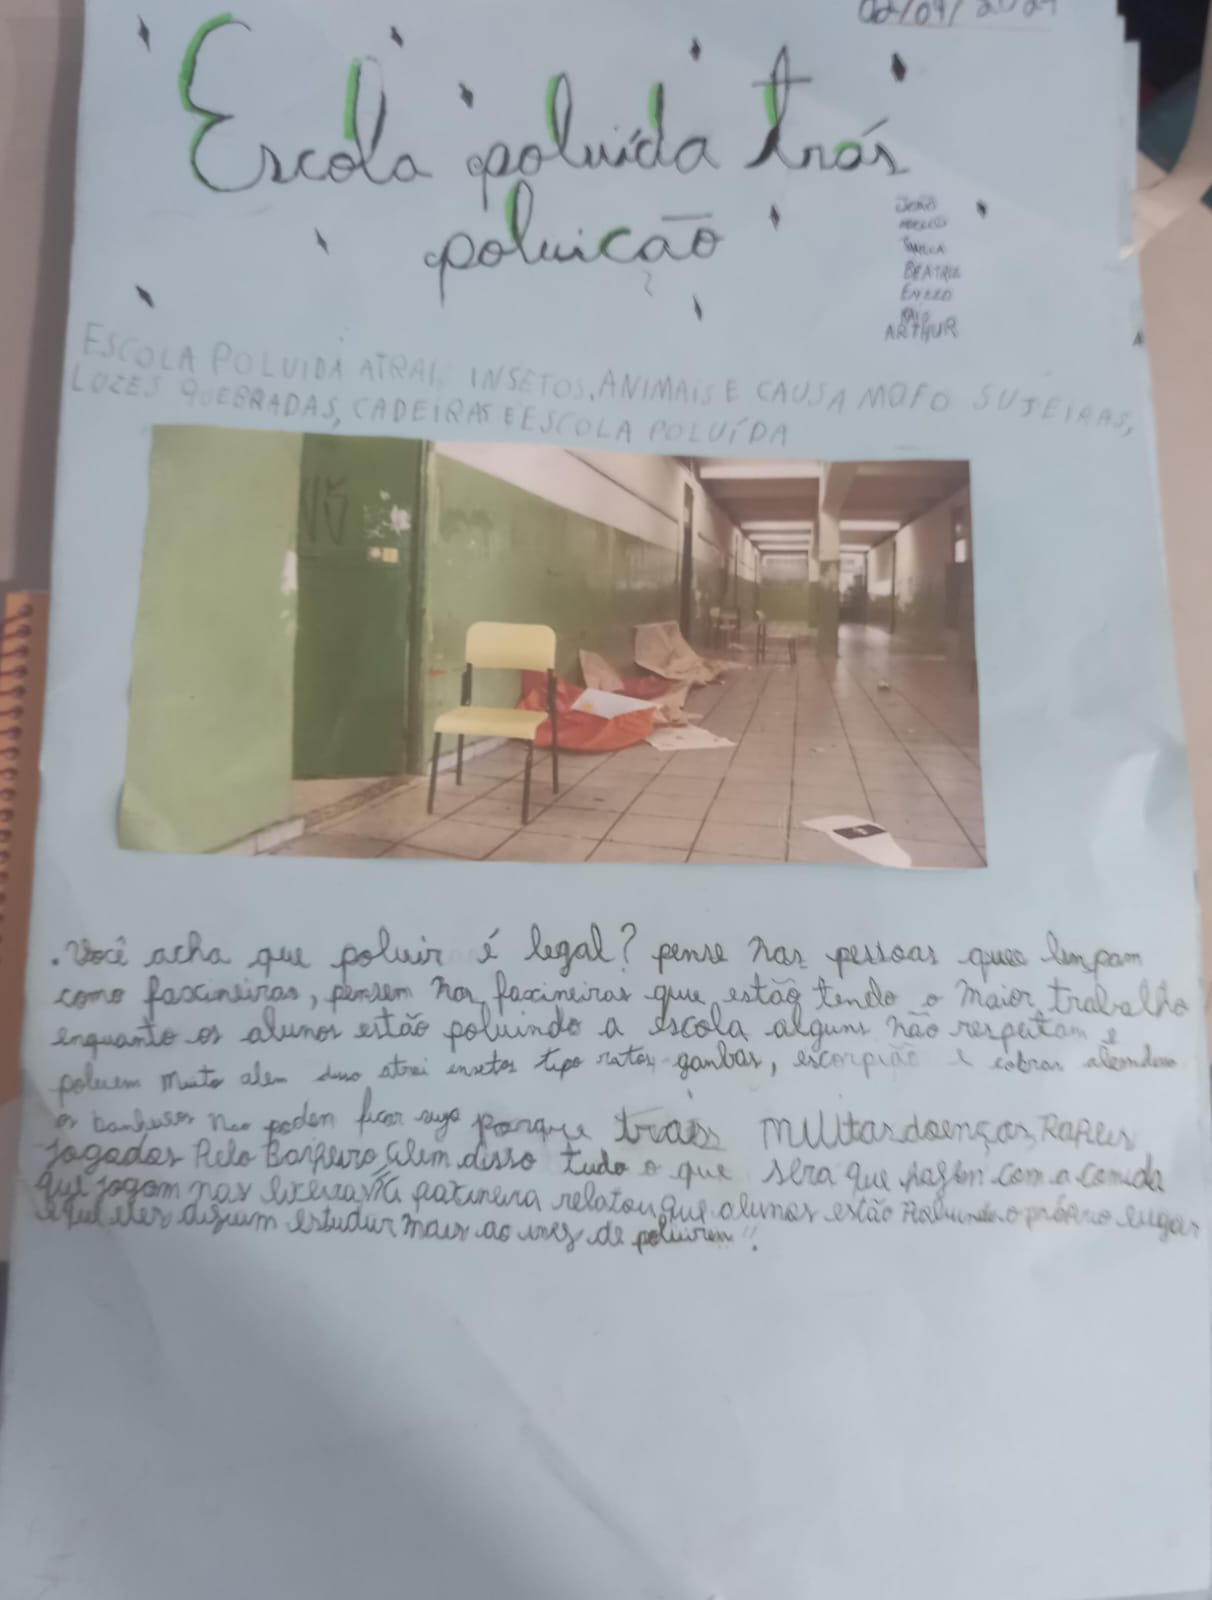 Escola poluída trás
poluição
JOÃO
BEATRIZ
ENZZO
ARTHUR
ESCOLA POLUIDA ATRAI, INSETOS, ANIMAIS E CAUSA MOFO SUJEIRAS,
LUZES QUEBRADAS, CADEIRAS E ESCOLA POLUÍDA
. Você acha que poluir é legal? pense nas pessoas que limpam
como faxineiras, pensem nas faxineiras que estão tendo o maior trabalho
enquanto os alunos estão poluindo a escola alguns não respeitam e
poluem muito alem disso atrai insetos tipo ratos, gambas, escorpião e cobras alem disso
os banheiros não podem ficar sujo porque trais muitas doenças, Papeis
jogados Pelo Banheiro, alem disso tudo o que sera que fazem com a comida
que jogam nas lixeiras a faxineira relatou que alunos estão Poluindo o próprio lugar
e que eles deviam estudar mais ao invez de poluirem!!